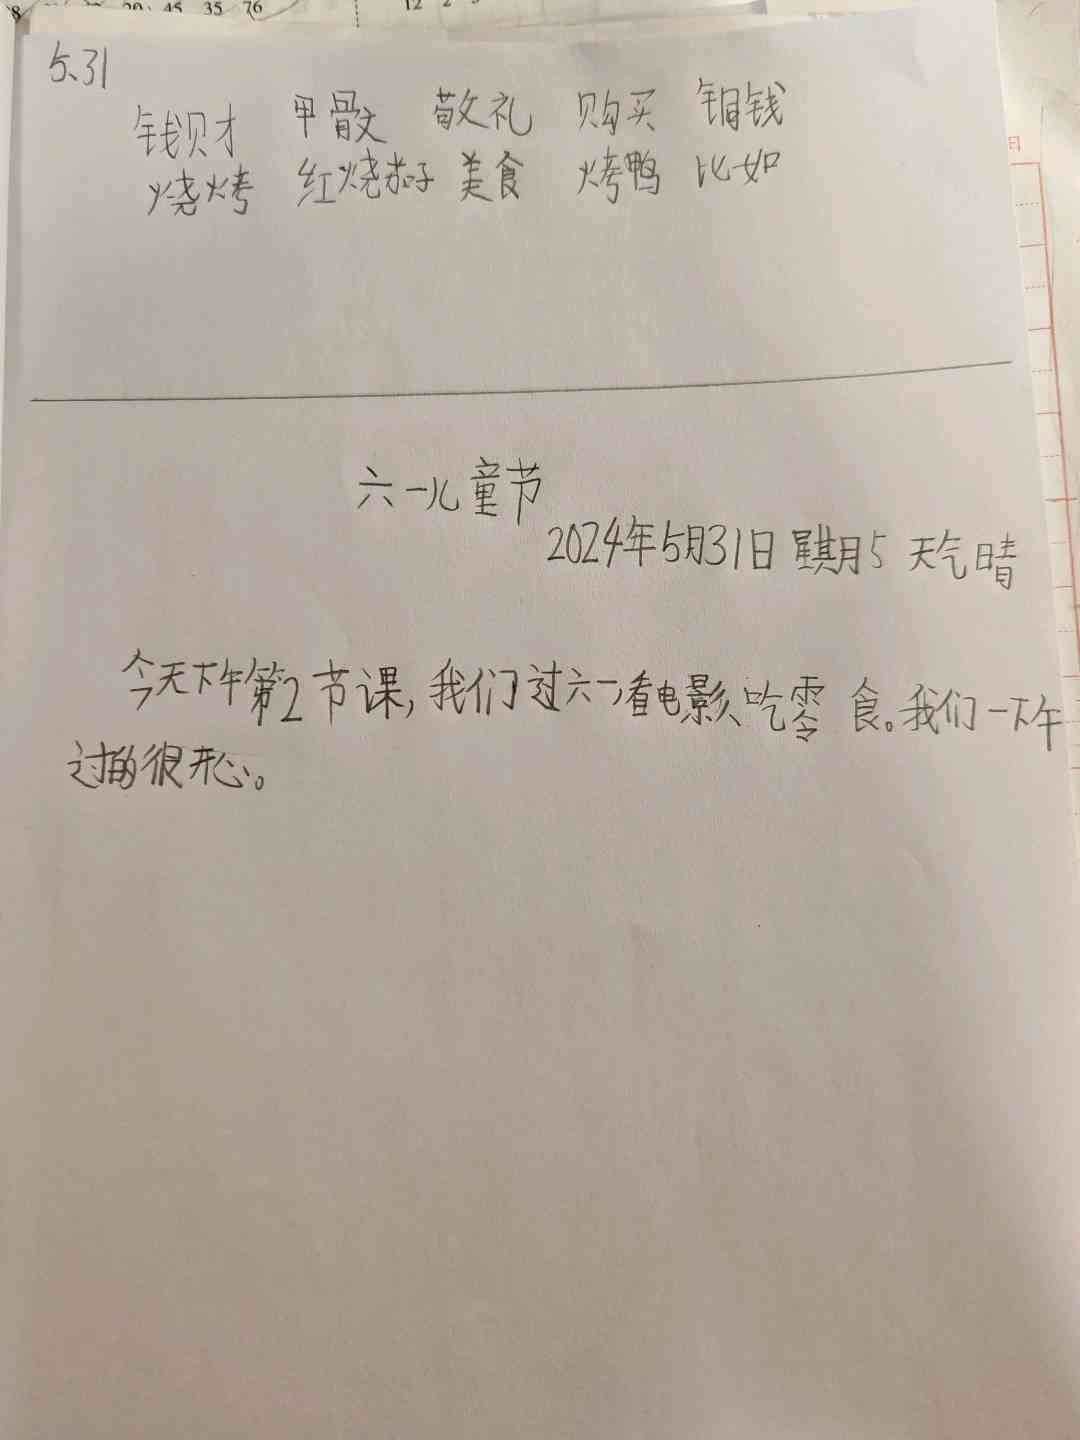 5.31
钱财 甲骨文 敬礼 购买 铜钱
烧烤 红烧茄子 美食 烤鸭 比如
六一儿童节
2024年5月31日 星期5 天气晴
今天下午第2节课,我们过六一,看电影、吃零食。我们一下午
过的很开心。